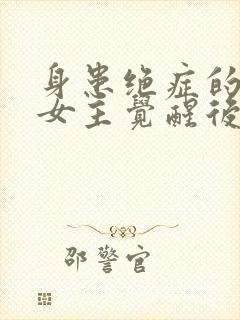 身患绝症的
女主覺醒後
邵警官